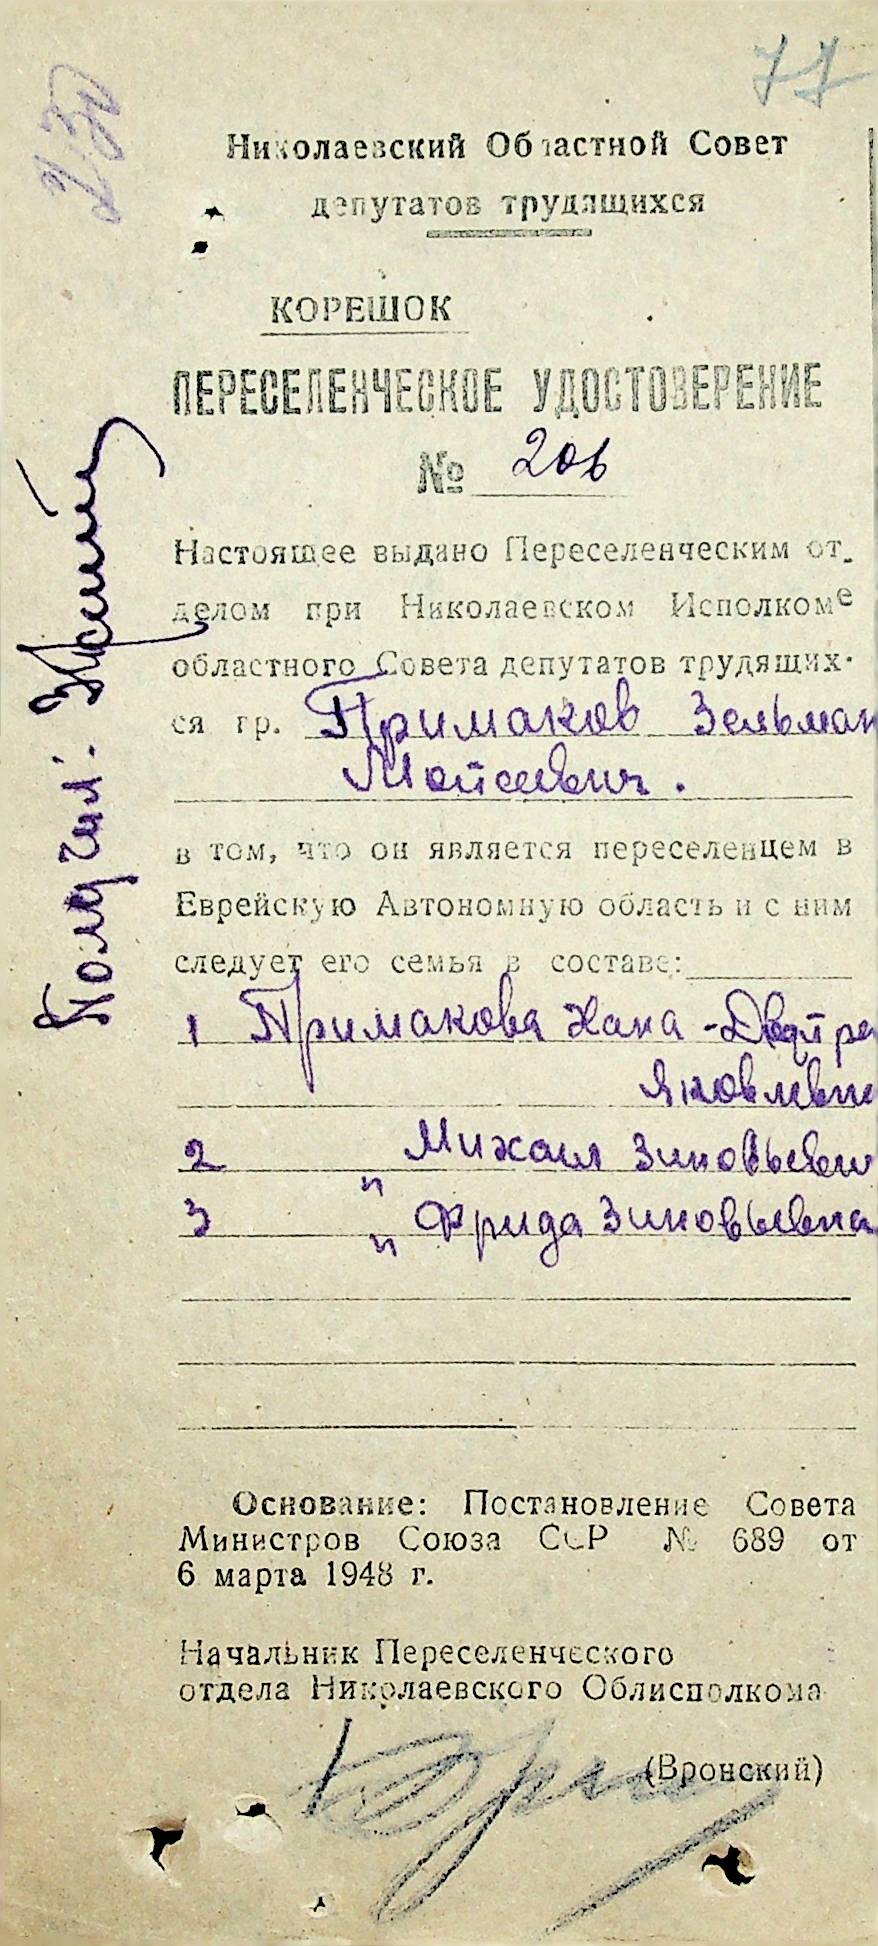 77
230
Николаевский Областной Совет
депутатов трудящихся
КОРЕШОК
ПЕРЕСЕЛЕНЧЕСКОЕ УДОСТОВЕРЕНИЕ
№ 206
Настоящее выдано Переселенческим от-
делом при Николаевском Исполкоме
областного Совета депутатов трудящих-
ся гр. Примаков Зельман
Мойсеевич.
в том, что он является переселенцем в
Еврейскую Автономную область и с ним
следует его семья в составе:
1 Примакова Хана-Двойра
Яковлевн
2 " Михаил Зиновьевич
3 " Фрида Зиновьевна
Основание: Постановление Совета
Министров Союза ССР № 689 от
6 марта 1948 г.
Начальник Переселенческого
отдела Николаевского Облисполкома
(Вронский)
Получил: